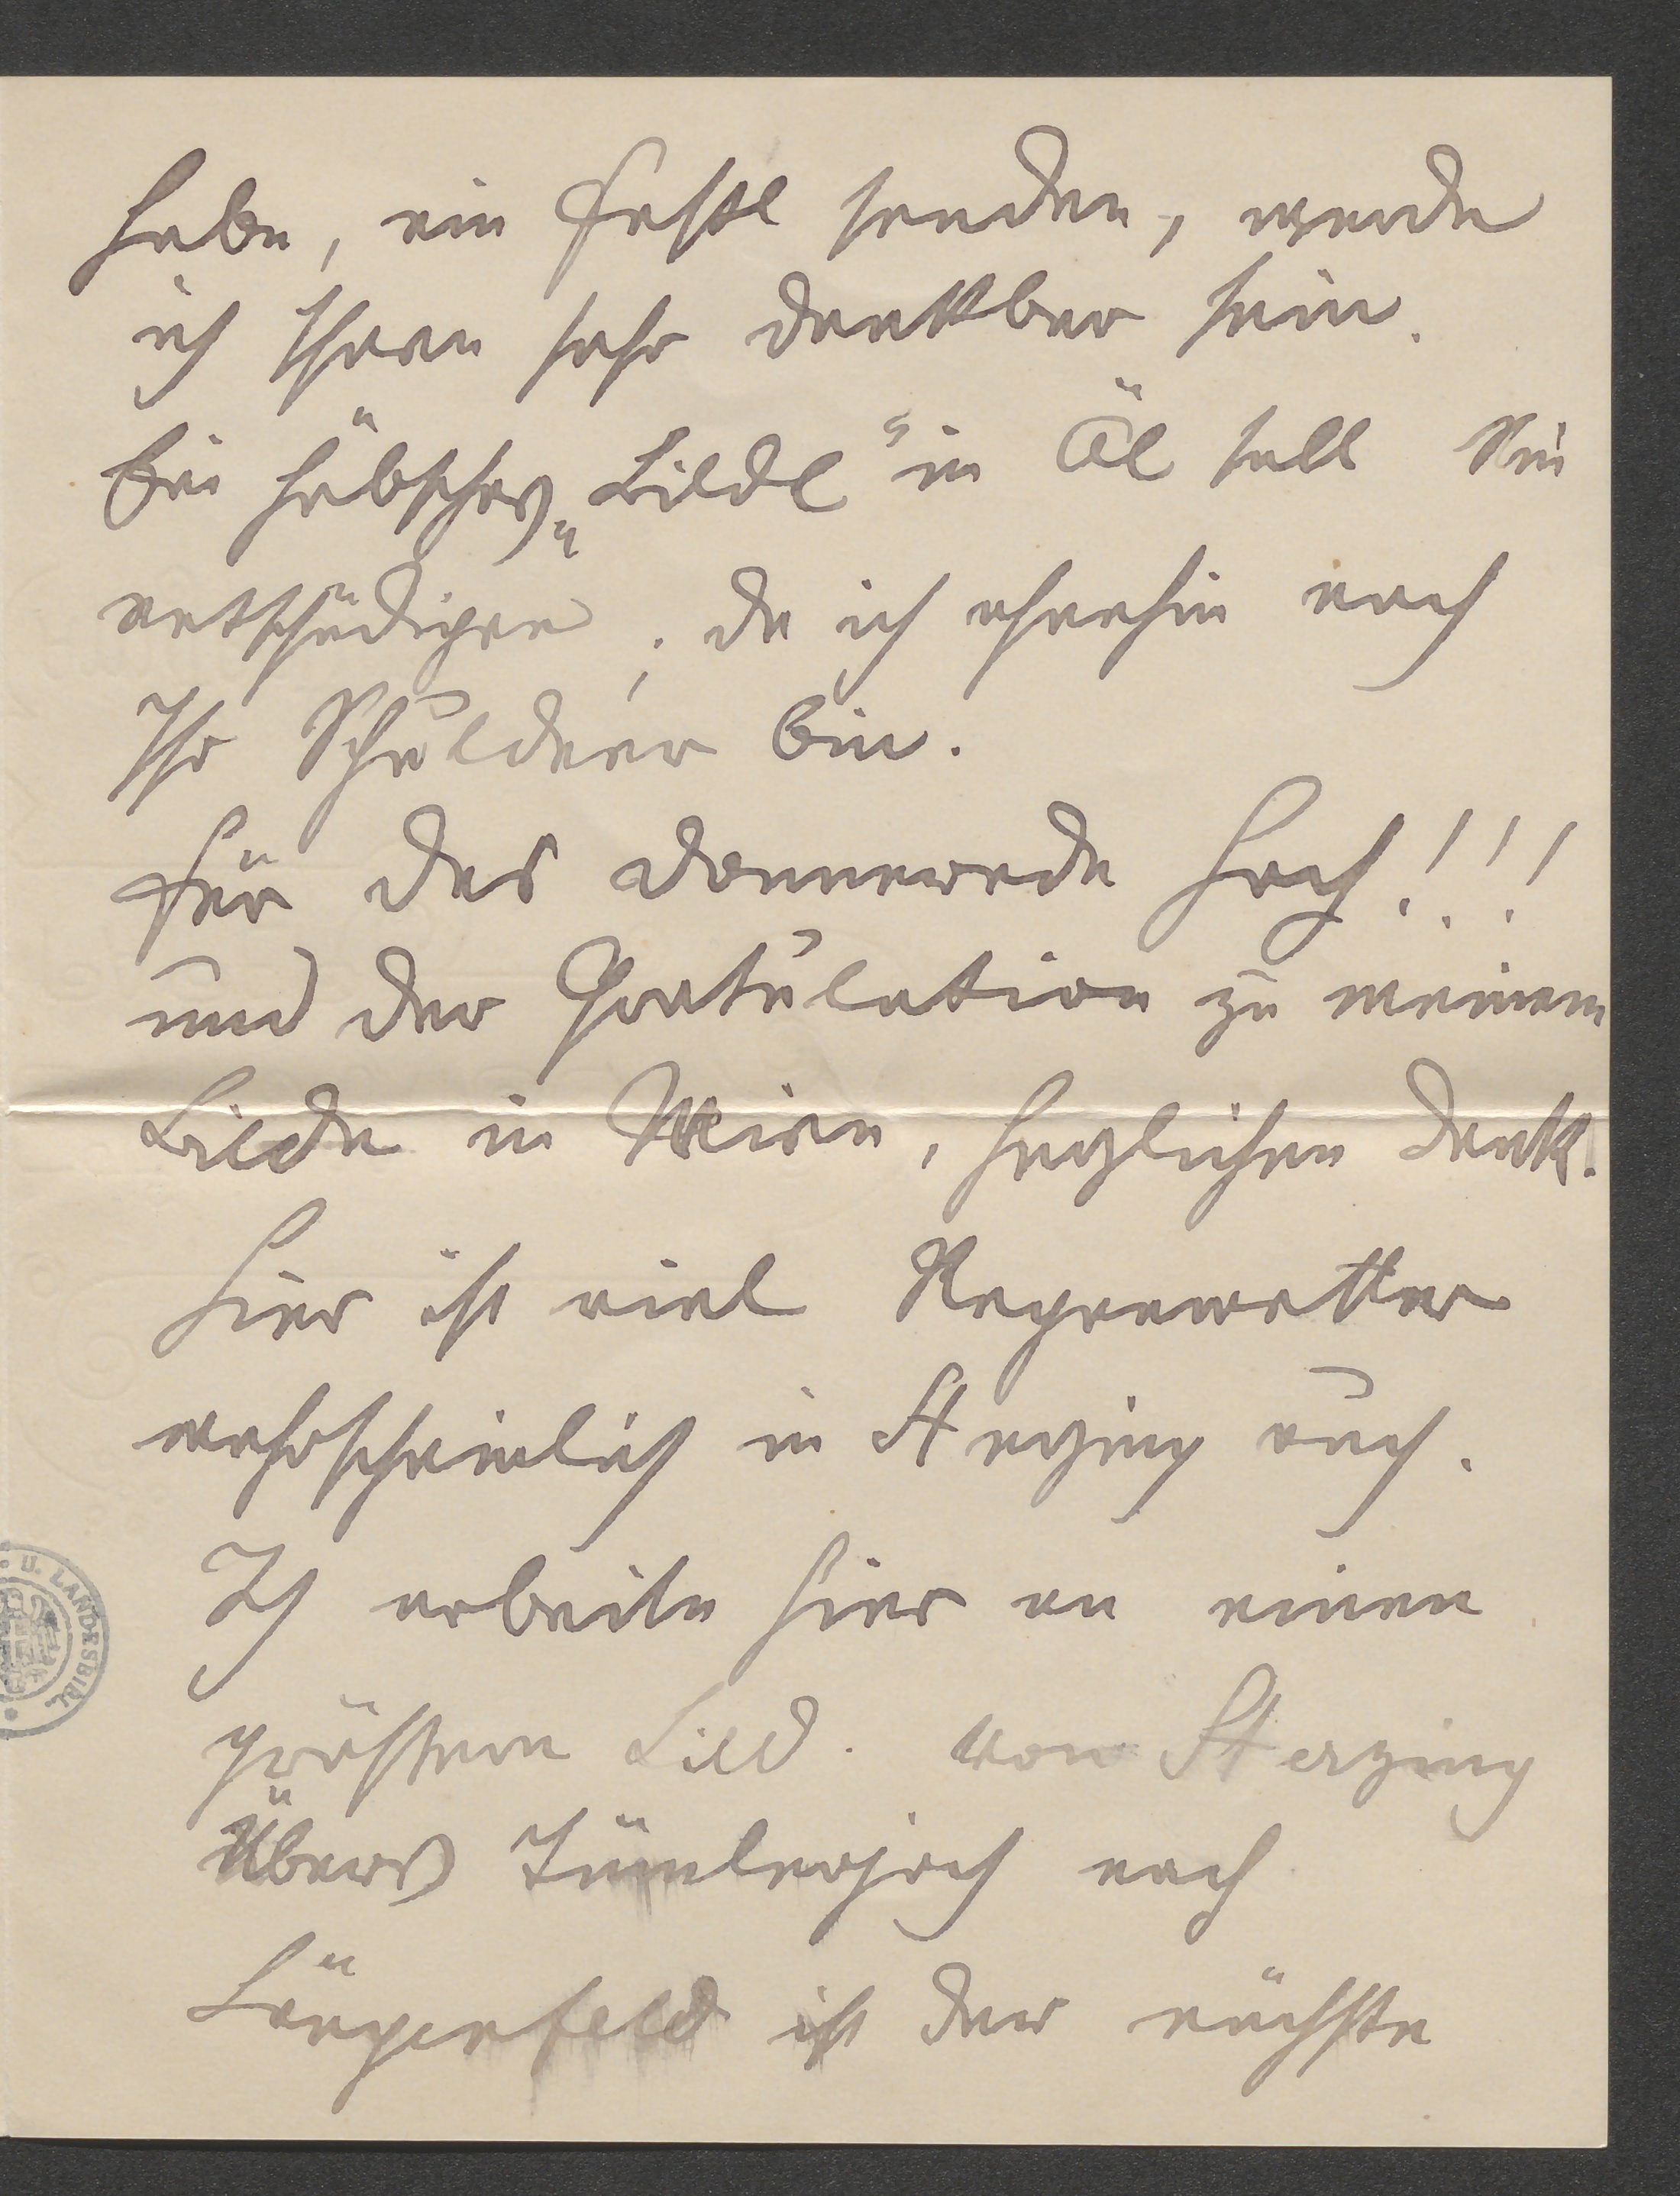 habe, ein Fastl senden, werde
ich Ihnen sehr dankbar sein.
Ein hübsches „Bildl“ in Öl soll Sie
entschädigen, da ich ohnehin noch
Ihr Schuldner bin.
Für das donnernde Hoch!!!
und der Gratulation zu meinem
Bilde in Wien, herzlichen Dank.
Hier ist viel Regenwetter
wahrscheinlich in Sterzing auch.
Ich arbeite hier an einen
größern Bild. Von Sterzing
übers Tümlerjoch nach
Längenfeld ist der nächste
U. LANDESBIBL.